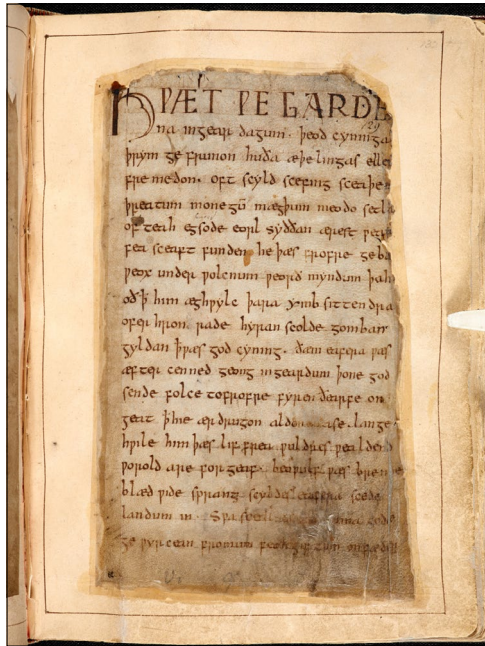 HǷÆT ǷE GARDE
na ingear dagum. þeod cyninga
þrym ge frunon huða æþelingas elle
fre medon. oft scyld scefing sceaþe
þreatum monegū mægþum meodo setla
of teah egsode eorl syððan ærest ƿea
fea sceaft funden he þæs frofre geba
ƿeox under ƿolcnum ƿeorð myndum þah
oð ꝥ him æghƿylc þara ymb sittendra
ofer hron rade hyran scolde gomban
gyldan ꝥ ƿæs god cyning. ðæm eafera ƿæs
æfter cenned geong ingeardum þone god
sende folce tofrofre fyren ðearfe on
geat ꝥ hie ær drugon aldor ase. lange
hƿile him þæs lif frea ƿuldres ƿealdend
ƿorold are for geaf. beoƿulf ƿæs breme
blæd ƿide sprang scyldes eafera scede
landum in. Sƿa sceal guma gode
ge ƿyrcean fromum feoh giftum on fæder